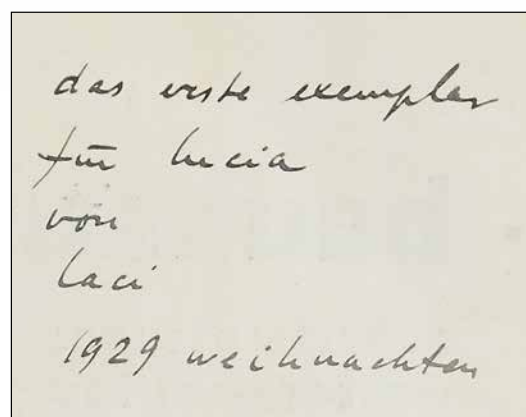 das erste exemplar
für lucia
von
laci
1929 weihnachten